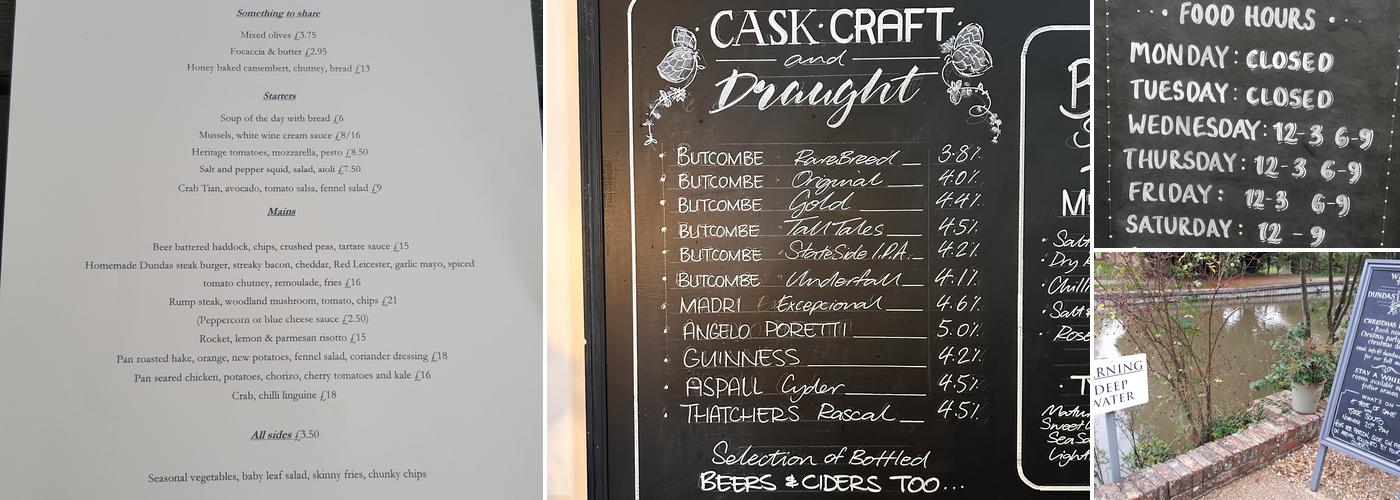 Something to share
Mixed olives £3.75
Focaccia & butter £2.95
Honey baked camembert, chutney, bread £13
Starters
Soup of the day with bread £6
Mussels, white wine cream sauce £8/16
Heritage tomatoes, mozzarella, pesto £8.50
Salt and pepper squid, salad, aioli £7.50
Crab Tian, avocado, tomato salsa, fennel salad £9
Mains
Beer battered haddock, chips, crushed peas, tartare sauce £15
Homemade Dundas steak burger, streaky bacon, cheddar, Red Leicester, garlic mayo, spiced
tomato chutney, remoulade, fries £16
Rump steak, woodland mushroom, tomato, chips £21
(Peppercorn or blue cheese sauce £2.50)
Rocket, lemon & parmesan risotto £15
Pan roasted hake, orange, new potatoes, fennel salad, coriander dressing £18
Pan seared chicken, potatoes, chorizo, cherry tomatoes and kale £16
Crab, chilli linguine £18
All sides £3.50
Seasonal vegetables, baby leaf salad, skinny fries, chunky chips
CASK · CRAFT
and
Draught
BUTCOMBE RareBreed 3.8%
BUTCOMBE Original 4.0%
BUTCOMBE Gold 4.4%
BUTCOMBE Tall Tales 4.5%
BUTCOMBE StateSide I.P.A. 4.2%
BUTCOMBE Underfall 4.1%
MADRI Excepcional 4.6%
ANGELO PORETTI 5.0%
GUINNESS 4.2%
ASPALL Cyder 4.5%
THATCHERS Rascal 4.5%
Selection of Bottled
BEERS & CIDERS TOO...
FOOD HOURS
MONDAY: CLOSED
TUESDAY: CLOSED
WEDNESDAY: 12-3 6-9
THURSDAY: 12-3 6-9
FRIDAY: 12-3 6-9
SATURDAY: 12-9
DEEP
WATER